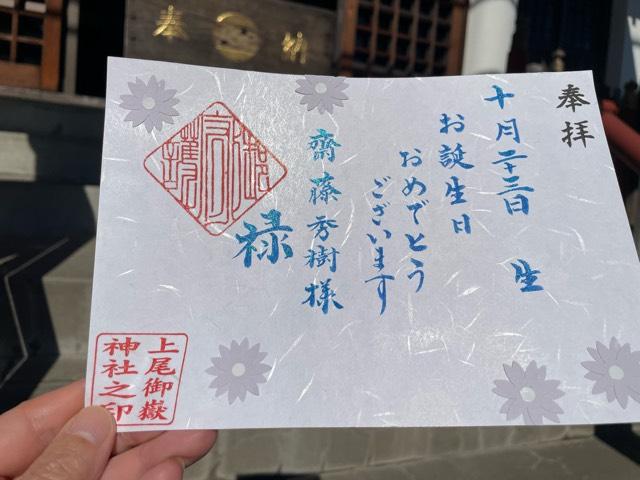 奉納
奉拝
十月二十三日 生
お誕生日
おめでとう
ございます
齋藤秀樹様
禄
上尾御嶽
神社之印